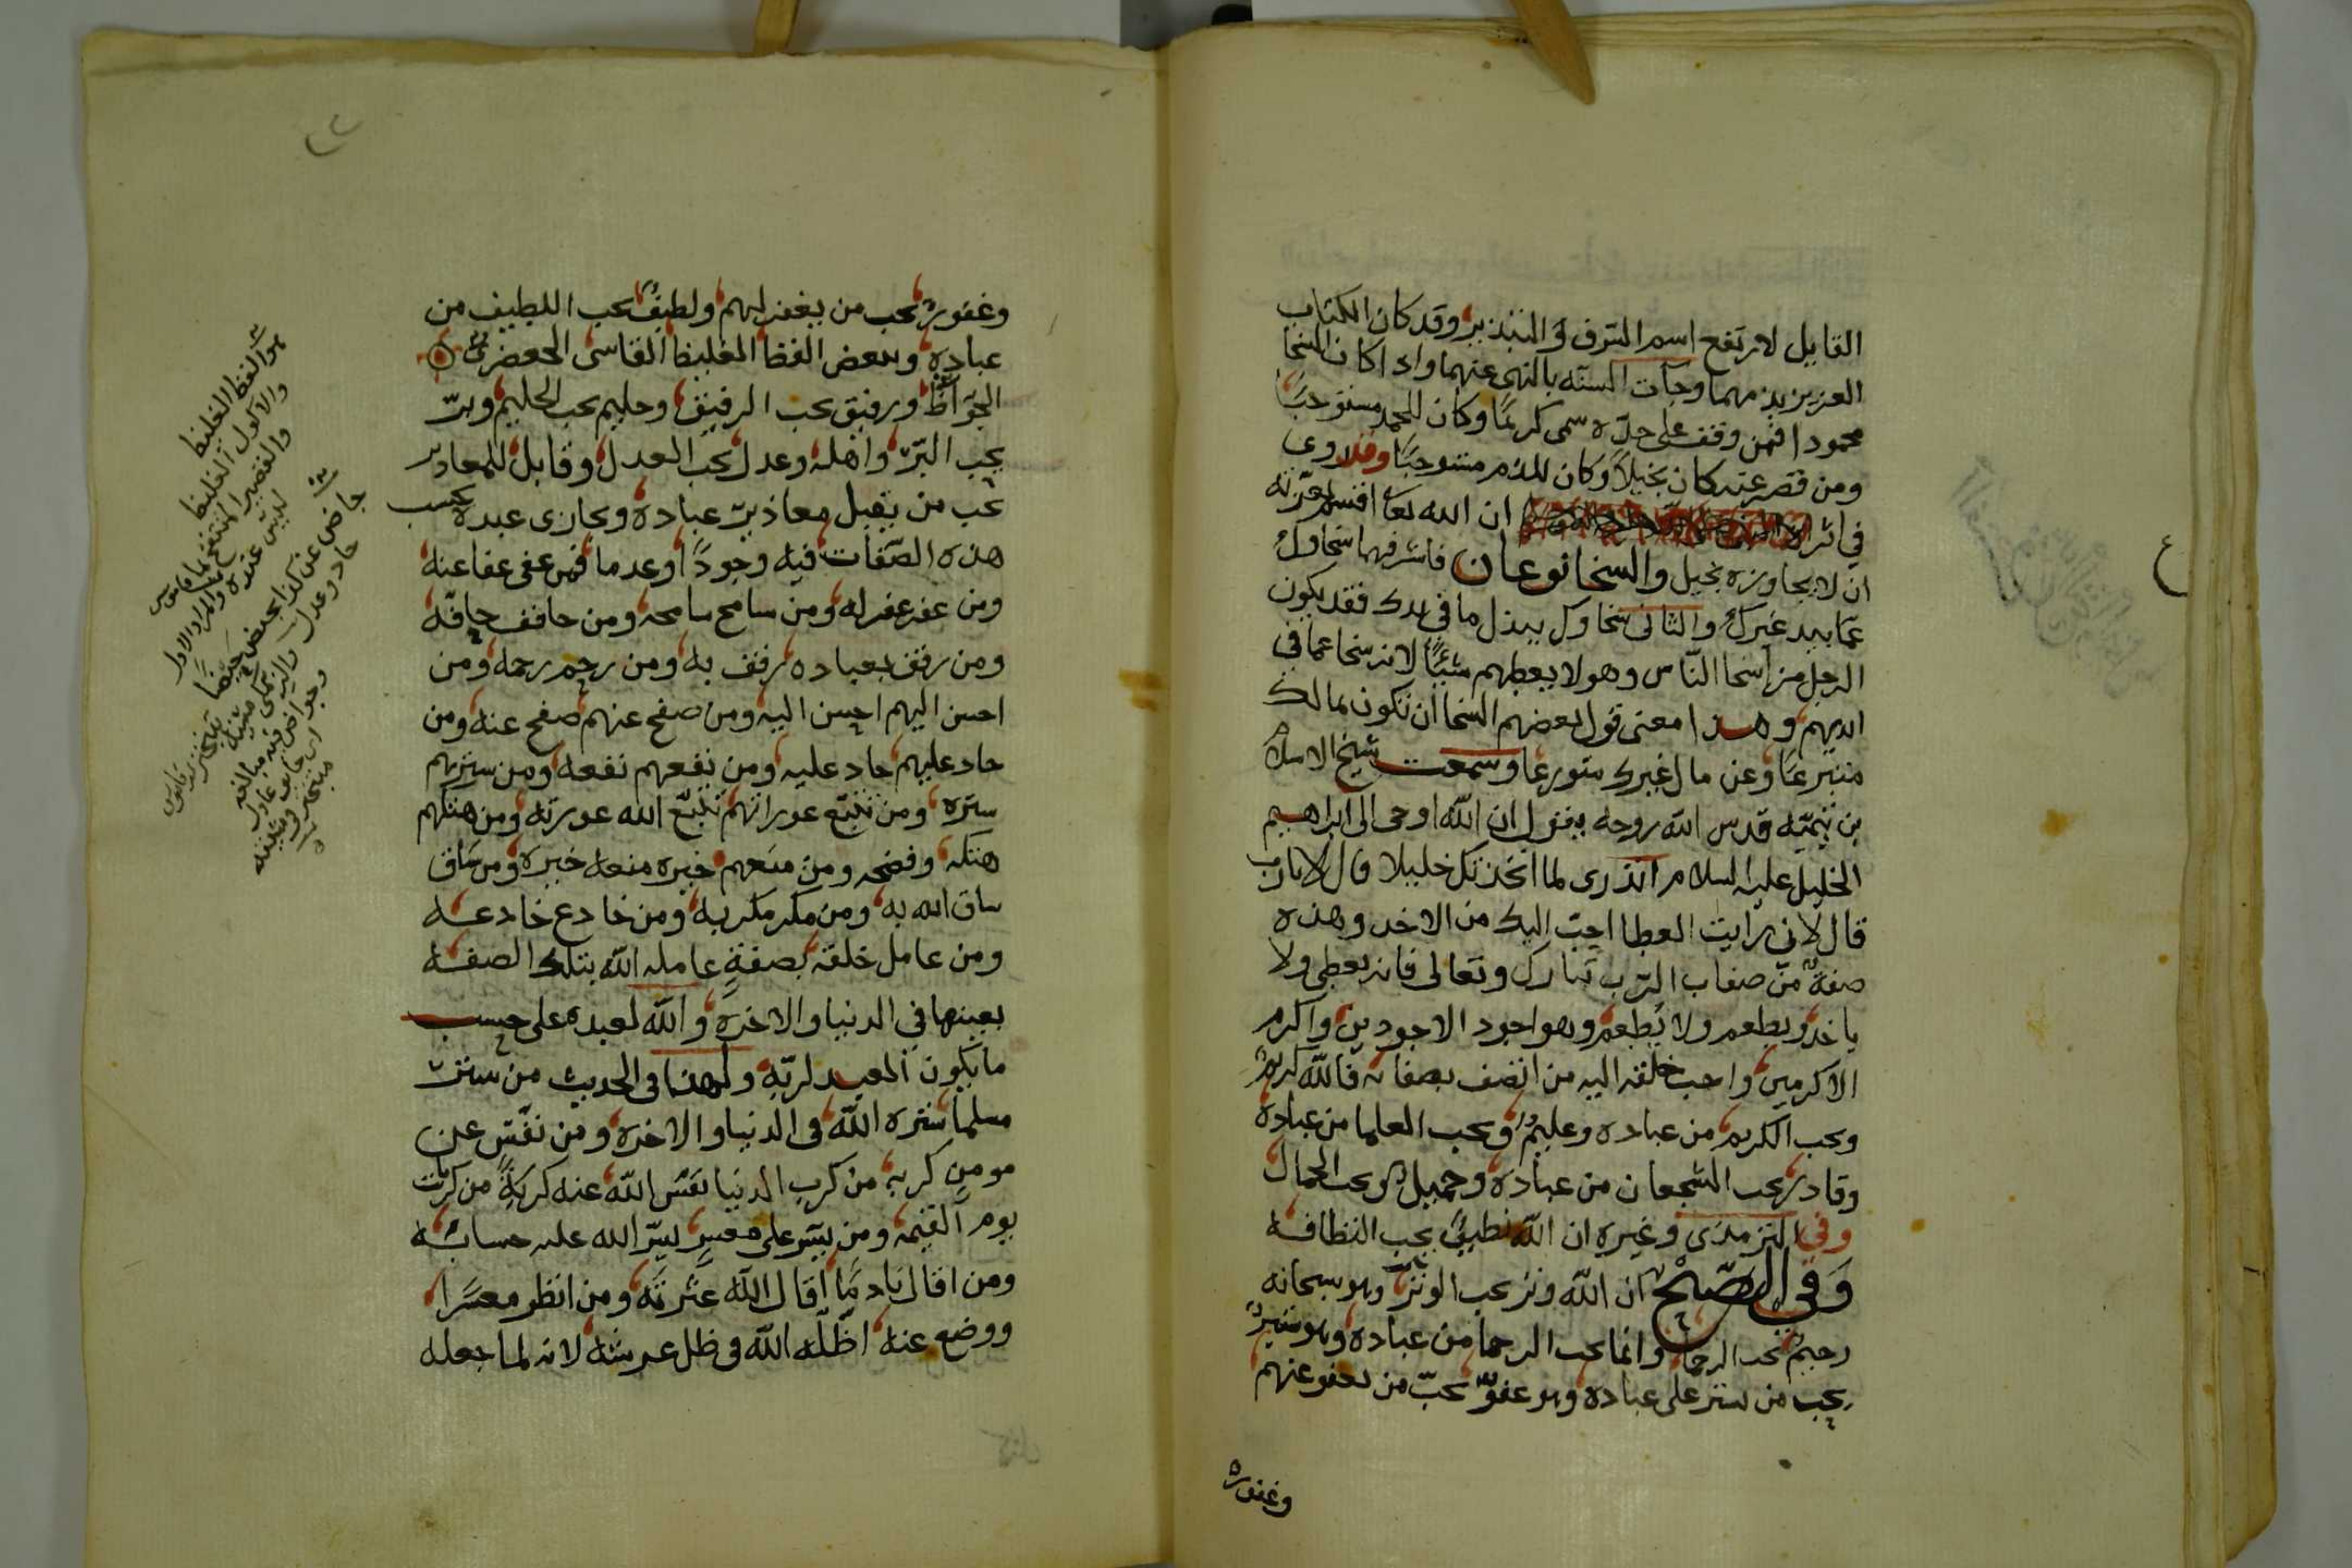 القايل لارتفع اسم السرف والتبذير وقد كان الكتاب
العزيز بذمهما وجآت السنه بالنهي عنهما واذا كان السخا
محمودا فمن وقف على حدّه سمى كريمًا وكان للحمد مستوجبًا
ومن قصر عنه كان بخيلاً وكان للذم مستوجبًا وقد روى
في اثر ان الله تعا اقسم بعزته
ان لا يجاوره بخيل والسخا نوعان فاشرفهما سخاوك
عمّا بيد غيرك والثانى سخاوك ببذل ما في يدك فقد يكون
الرجل من اسخا النّاس وهو لا يعطيهم شيئًا لانه سخا عما في
ايديهم وهذا معنى قول بعضهم السخا ان تكون بمالك
متبرعًا وعن مال غيرك متورعا وسمعت شيخ الاسلام
بن تيميّه قدس الله روحه يقول ان الله اوحى الى ابراهيم
الخليل عليه السلام اتدرى لما اتخذتك خليلا قال لا يارب
قال لانى رايت العطا احبّ اليك من الاخذ وهذه
صفةٌ من صفات الرّب تبارك وتعالى فانه يعطى ولا
ياخذ ويطعم ولا يُطعم وهو اجود الاجودين واكرم
الاكرمين واحب خلقه اليه من اتصف بصفاته فالله كريمٌ
ويحب الكريم من عباده وعليمٌ ويحب العلما من عباده
وقادر يحب الشجعان من عباده وجميل يحب الجمال
وفي الترمذى وغيره ان الله نظيفٌ يحب النظافه
وَفي الصَّحيْح ان الله وتر يحب الوتر وهو سبحانه
رحيمٌ يحب الرحما وانما يحب الرحما من عباده وهو ستيرٌ
يحب من يستر على عباده وهو عفوٌّ يحبّ من يعفو عنهم
وغفورٌ
وغفورٌ يحب من يغفر لهم ولطيفٌ يحب اللطيف من
عباده ويبغض الفظ الغليظ القاسى الجعضرى
الجوّاظ ورفيق يحب الرفيق وحليم يحب الحليم وبرّ
يحب البرّ واهله وعدل يحب العدل وقابل المعاذير
يحب من يقبل معاذير عباده ويجازى عبده بحسب
هذه الصّفات فيه وجودًا وعدما فمن عفى عفا عنه
ومن غفر غفر له ومن سامح سامحه ومن حاقق حاققه
ومن رفق بعباده رفق به ومن رحم رحمه ومن
احسن اليهم احسن اليه ومن صفح عنهم صفح عنه ومن
جاد عليهم جاد عليه ومن نفعهم نفعه ومن سترهم
ستره ومن تتبّع عوراتهم تتبّع الله عورته ومن هتكهم
هتكه وفضحه ومن منعهم خيره منعه خيره ومن شاق
شاق الله به ومن مكر مكر به ومن خادع خادعه
ومن عامل خلقه بصفةٍ عامله الله بتلك الصفه
بعينها في الدنيا والاخره والله لعبده على حسب
ما يكون العبد لربّه ولهذا في الحديث من ستر
مسلمًا ستره الله في الدنيا والاخره ومن نفّس عن
مومن كربه من كرب الدنيا نفّس الله عنه كربةً من كربات
يوم القيمه ومن يسّر على معسرٍ يسّر الله عليه حسابه
ومن اقال نادمًا اقال الله عثرته ومن انظر معسرًا
ووضع عنه اظلّه الله في ظل عرشه لانه لما جعله
هو الفظ الغليظ
والاكول الغليظ
والقصير المنتفخ بما
ليس عنده والمراد الاول
جاض عن كذا يجيض جيضًا
حاد وعدل